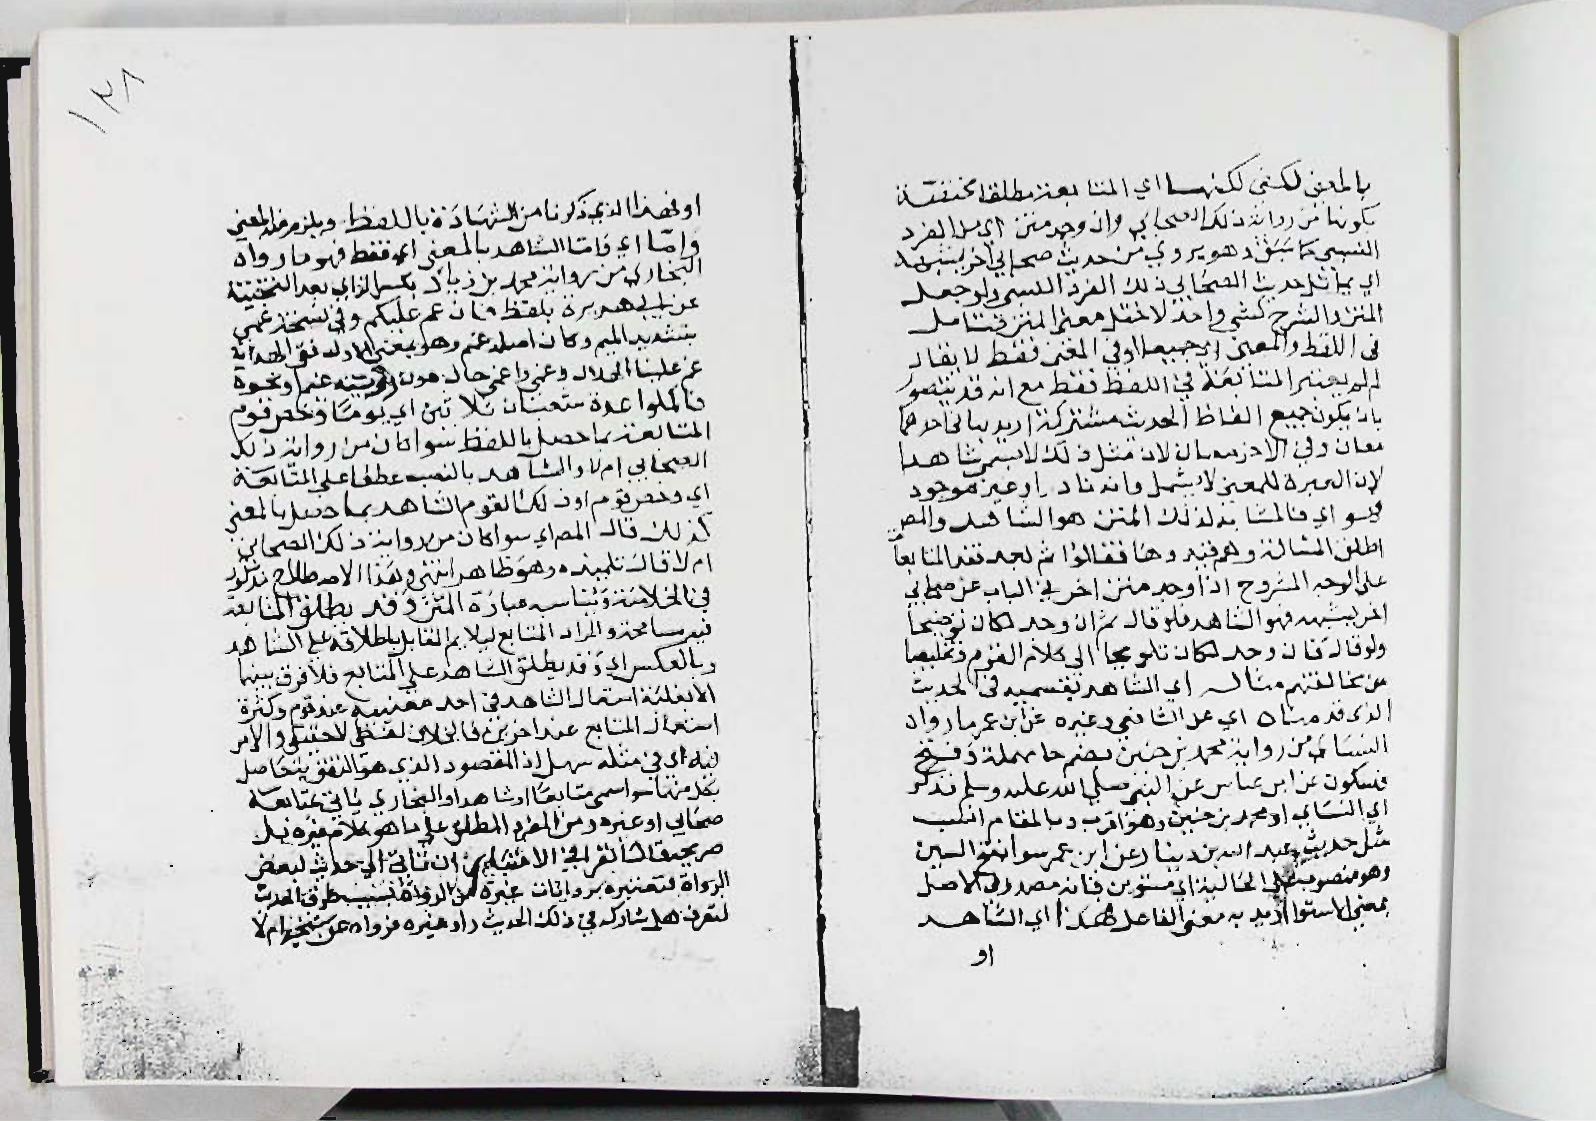 بالمعنى لكفى لكنها اي المتابعة مطلقا مختصة
بكونها من رواية ذلك الصحابي وان وجد متن اي مثل الفرد
النسبي كما سبق وهو يروي من حديث صحابي آخر يشبهه
اي يماثل حديث الصحابي ذلك الفرد النسبي ولو جعل
المتن والشرح كشي واحد لاختل معنى المتن فتامل
في اللفظ والمعنى اي جميعا او في المعنى فقط لا يقال
لم لم يعتبر المتابعة في اللفظ فقط مع انه قد يتصور
بان يكون جميع الفاظ الحديث مشتركة اريد بها في احدهما
معان وفي الاخر معان لان مثل ذلك لا يسمى شاهدا
لان العبرة للمعنى لا يشمل وانه نادر او غير موجود
فهو اي فالمشابه لذلك المتن هو الشاهد والمص
اطلق المشابهة وهم قيدوها فقالوا ثم بعد فقد المتابعا
على الوجه المشروح اذا وجد متن اخر في الباب عن صحابي
اخر يشبهه فهو الشاهد فلو قال ثم ان وجد لكان توضيحا
ولو قال فان وجد لكان تلويحا الى كلام القوم وتخليصا
من مخالفتهم مثاله اي الشاهد بقسميه في الحديث
الذي قدمناه اي عن الشافعي وغيره عن ابن عمر ما رواه
النسائي من رواية محمد بن حنين بضم حا مهملة وفتح
فسكون عن ابن عباس عن النبي صلى الله عليه وسلم فذكر
اي النسائي او محمد بن حنين وهو اقرب وبالمقام انسب
مثل حديث عبد الله بن دينار عن ابن عمر سوا بفتح السين
وهو منصوب على الحالية اي مستويين فانه مصدر في الاصل
بمعنى الاستوا اريد به معنى الفاعل فهذا اي الشاهد
او
١٣٨
او فهذا الذي ذكرنا من الشهادة باللفظ ويلزم منه المعنى
واما اي فاما الشاهد بالمعنى اي فقط فهو ما رواه
البخاري من رواية محمد بن زياد بكسر الزاي بعد التحتية
عن ابي هريرة بلفظ فان غم عليكم وفي نسخة غمي
بتشديد الميم وكان اصله غم وهو بمعنى الاول ففي
غم علينا الهلال وغمي واغمي حال دون رويته غيم او نحوه
فاكملوا عدة شعبان ثلاثين اي يوما وخص قوم
المتابعة بما حصل باللفظ سوا كان من رواية ذلك
الصحابي ام لا والشاهد بالنصب عطفا على المتابعة
اي وخص قوم اوذلك القوم الشاهد بما حصل بالمعنى
كذلك قال المص اي سوا كان من رواية ذلك الصحابي
ام لا قال تلميذه وهو ظاهر انتهى وهذا الاصطلاح مذكور
في الخلاصة ويناسب عبارة المتن وقد يطلق المتابعة
فيه مسامحة والمراد المتابع ليلايم القابل باطلاقه على الشاهد
وبالعكس اي وقد يطلق الشاهد على المتابع فلا فرق بينهما
الا بغلبة استعمال الشاهد في احد معنييه عند قوم وكثرة
استعمال المتابع عند اخرين فالخلاف لفظي لا حقيقي والامر
فيه اي في مثله سهل اذ المقصود الذي هو التقوية حاصل
بكل منهما سوا سمي متابعا او شاهدا والبخاري ياتي بمتابعة
صحابي او غيره
صريحة قال العراقي الاعتبار ان تاتي الى حديث لبعض
الرواة فتعتبره بروايات غيره من الرواة بسبر طرق الحديث
لتعرف هل شاركه في ذلك الحديث راو غيره فرواه عن شيخه ام لا